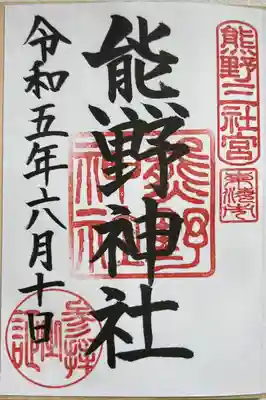 熊野三社宮
熊野神社
令和五年六月十日